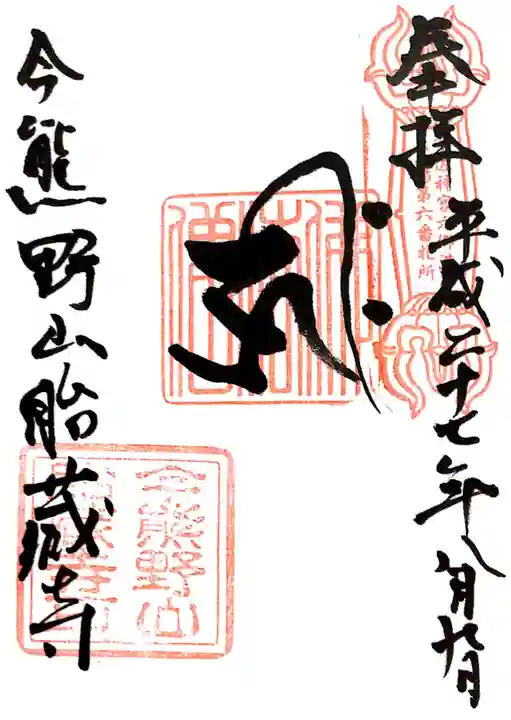 奉拝
平成二十七年八月九日
第六番札所
今熊野山胎蔵寺
今熊野山
胎蔵寺印